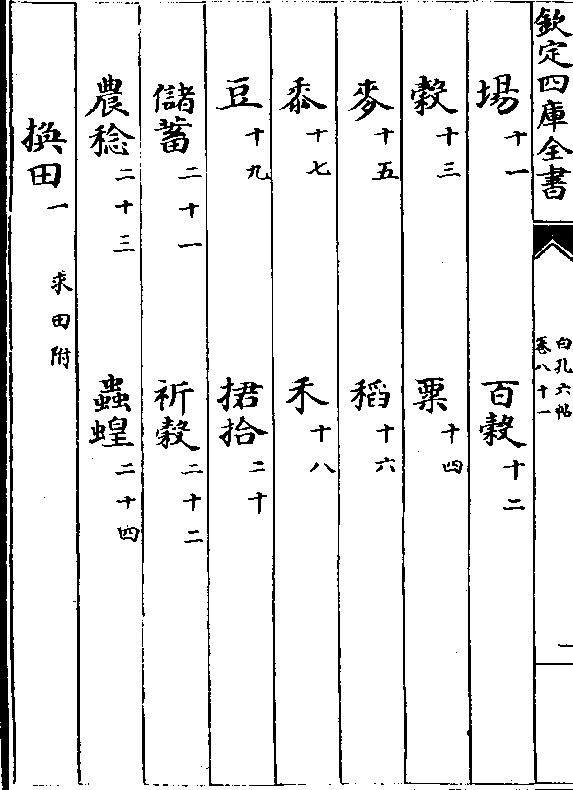 欽定四庫全書
白孔六帖
卷八十一
一
場十一 百穀十二
穀十三 粟十四
麥十五 稻十六
黍十七 禾十八
豆十九 捃拾二十
儲蓄二十一 祈穀二十二
農稔二十三 蟲蝗二十四
換田一 求田附